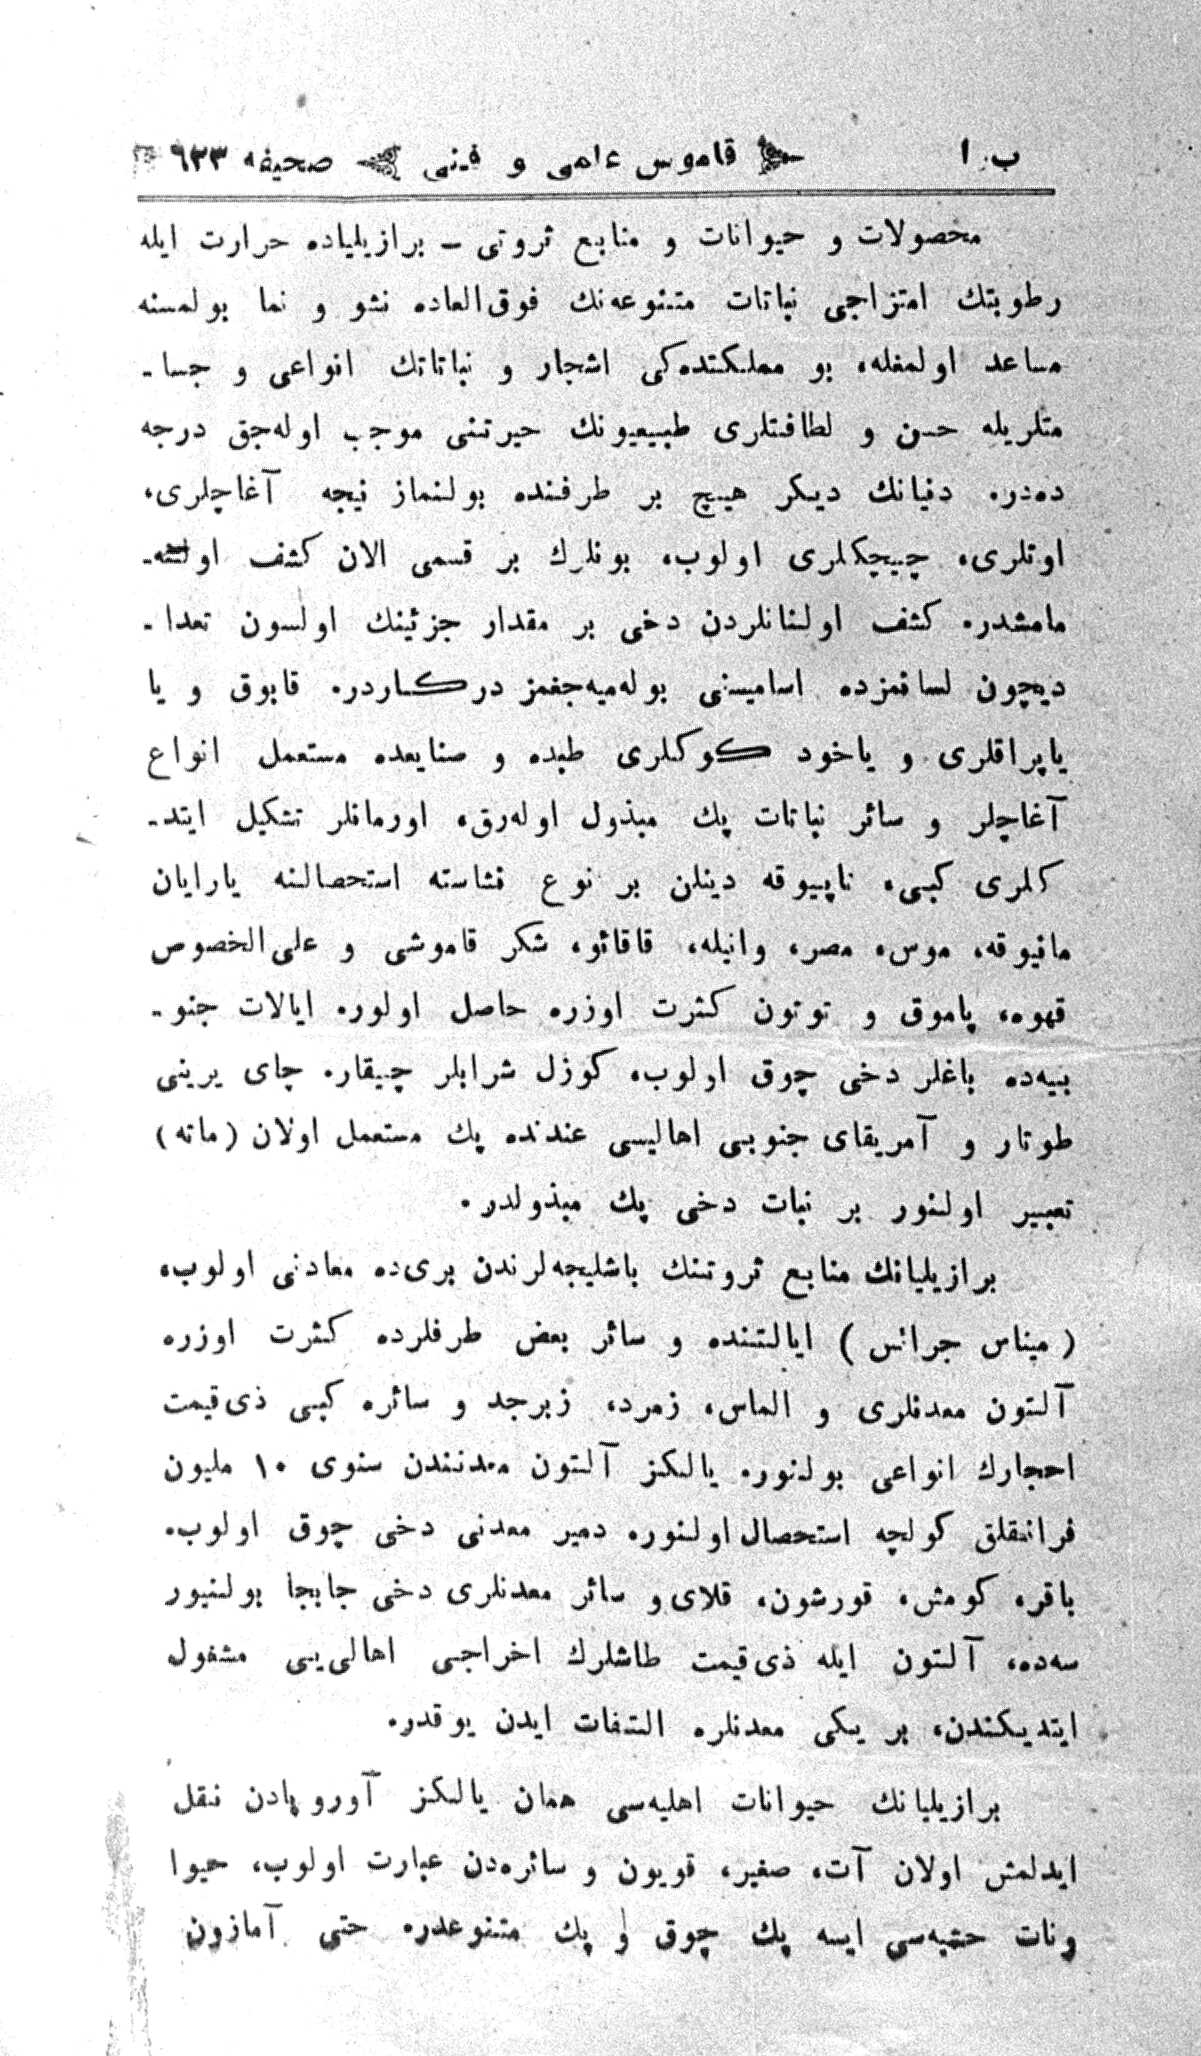 ب. ا قاموس علمی و فنی صحیفه ٦٣٣
محصولات و حیوانات و منابع ثروتی – برازیلیاده حرارت ایله
رطوبتك امتزاجی نباتات متنوعه‌نك فوق‌العاده نشو و نما بولمسنه
مساعد اولمغله، بو مملكتده‌كی اشجار و نباتاتك انواعی و جسا-
متلریله حسن و لطافتلری طبیعیونك حیرتنی موجب اوله‌جق درجه
ده‌در. دنیانك دیكر هیچ بر طرفنده بولنماز نیجه آغاچلری،
اوتلری، چیچكلری اولوب، بونلرك بر قسمی الان كشف اولنه-
مامشدر. كشف اولنانلردن دخی بر مقدار جزئینك اولسون تعدا-
دیچون لسانمزده اسامیسنی بوله‌میه‌جغمز دركاردر. قابوق و یا
یاپراقلری و یاخود كوكلری طبده و صنایعده مستعمل انواع
آغاچلر و سائر نباتات پك مبذول اوله‌رق، اورمانلر تشكیل ایتد-
كلری كبی، تاپیوقه دینلن بر نوع نشاسته استحصالنه یارایان
مانیوقه، موس، مصر، وانیله، قاقائو، شكر قاموشی و علی‌الخصوص
قهوه، پاموق و توتون كثرت اوزره حاصل اولور. ایالات جنو-
بیه‌ده باغلر دخی چوق اولوب، كوزل شرابلر چیقار. چای یرینی
طوتار و آمریقای جنوبی اهالیسی عندنده پك مستعمل اولان (ماته)
تعبیر اولنور بر نبات دخی پك مبذولدر.
برازیلیانك منابع ثروتنك باشلیجه‌لرندن بری‌ده معادنی اولوب،
(میناس جرائس) ایالتنده و سائر بعض طرفلرده كثرت اوزره
آلتون معدنلری و الماس، زمرد، زبرجد و سائره كبی ذی‌قیمت
احجارك انواعی بولنور. یالكز آلتون معدنندن سنوی ١٠ ملیون
فرانقلق كولچه استحصال اولنور. دمیر معدنی دخی چوق اولوب.
باقر، كومش، قورشون، قلای و سائر معدنلری دخی جابجا بولنیور
سه‌ده، آلتون ایله ذی‌قیمت طاشلرك اخراجی اهالی‌یی مشغول
ایتدیكندن، بر یكی معدنلره التفات ایدن یوقدر.
برازیلیانك حیوانات اهلیه‌سی همان یالكز آوروپادن نقل
ایدلمش اولان آت، صغیر، قویون و سائره‌دن عبارت اولوب، حیوا
ونات حشبه‌سی ایسه پك چوق و پك متنوعدر. حتی آمازون